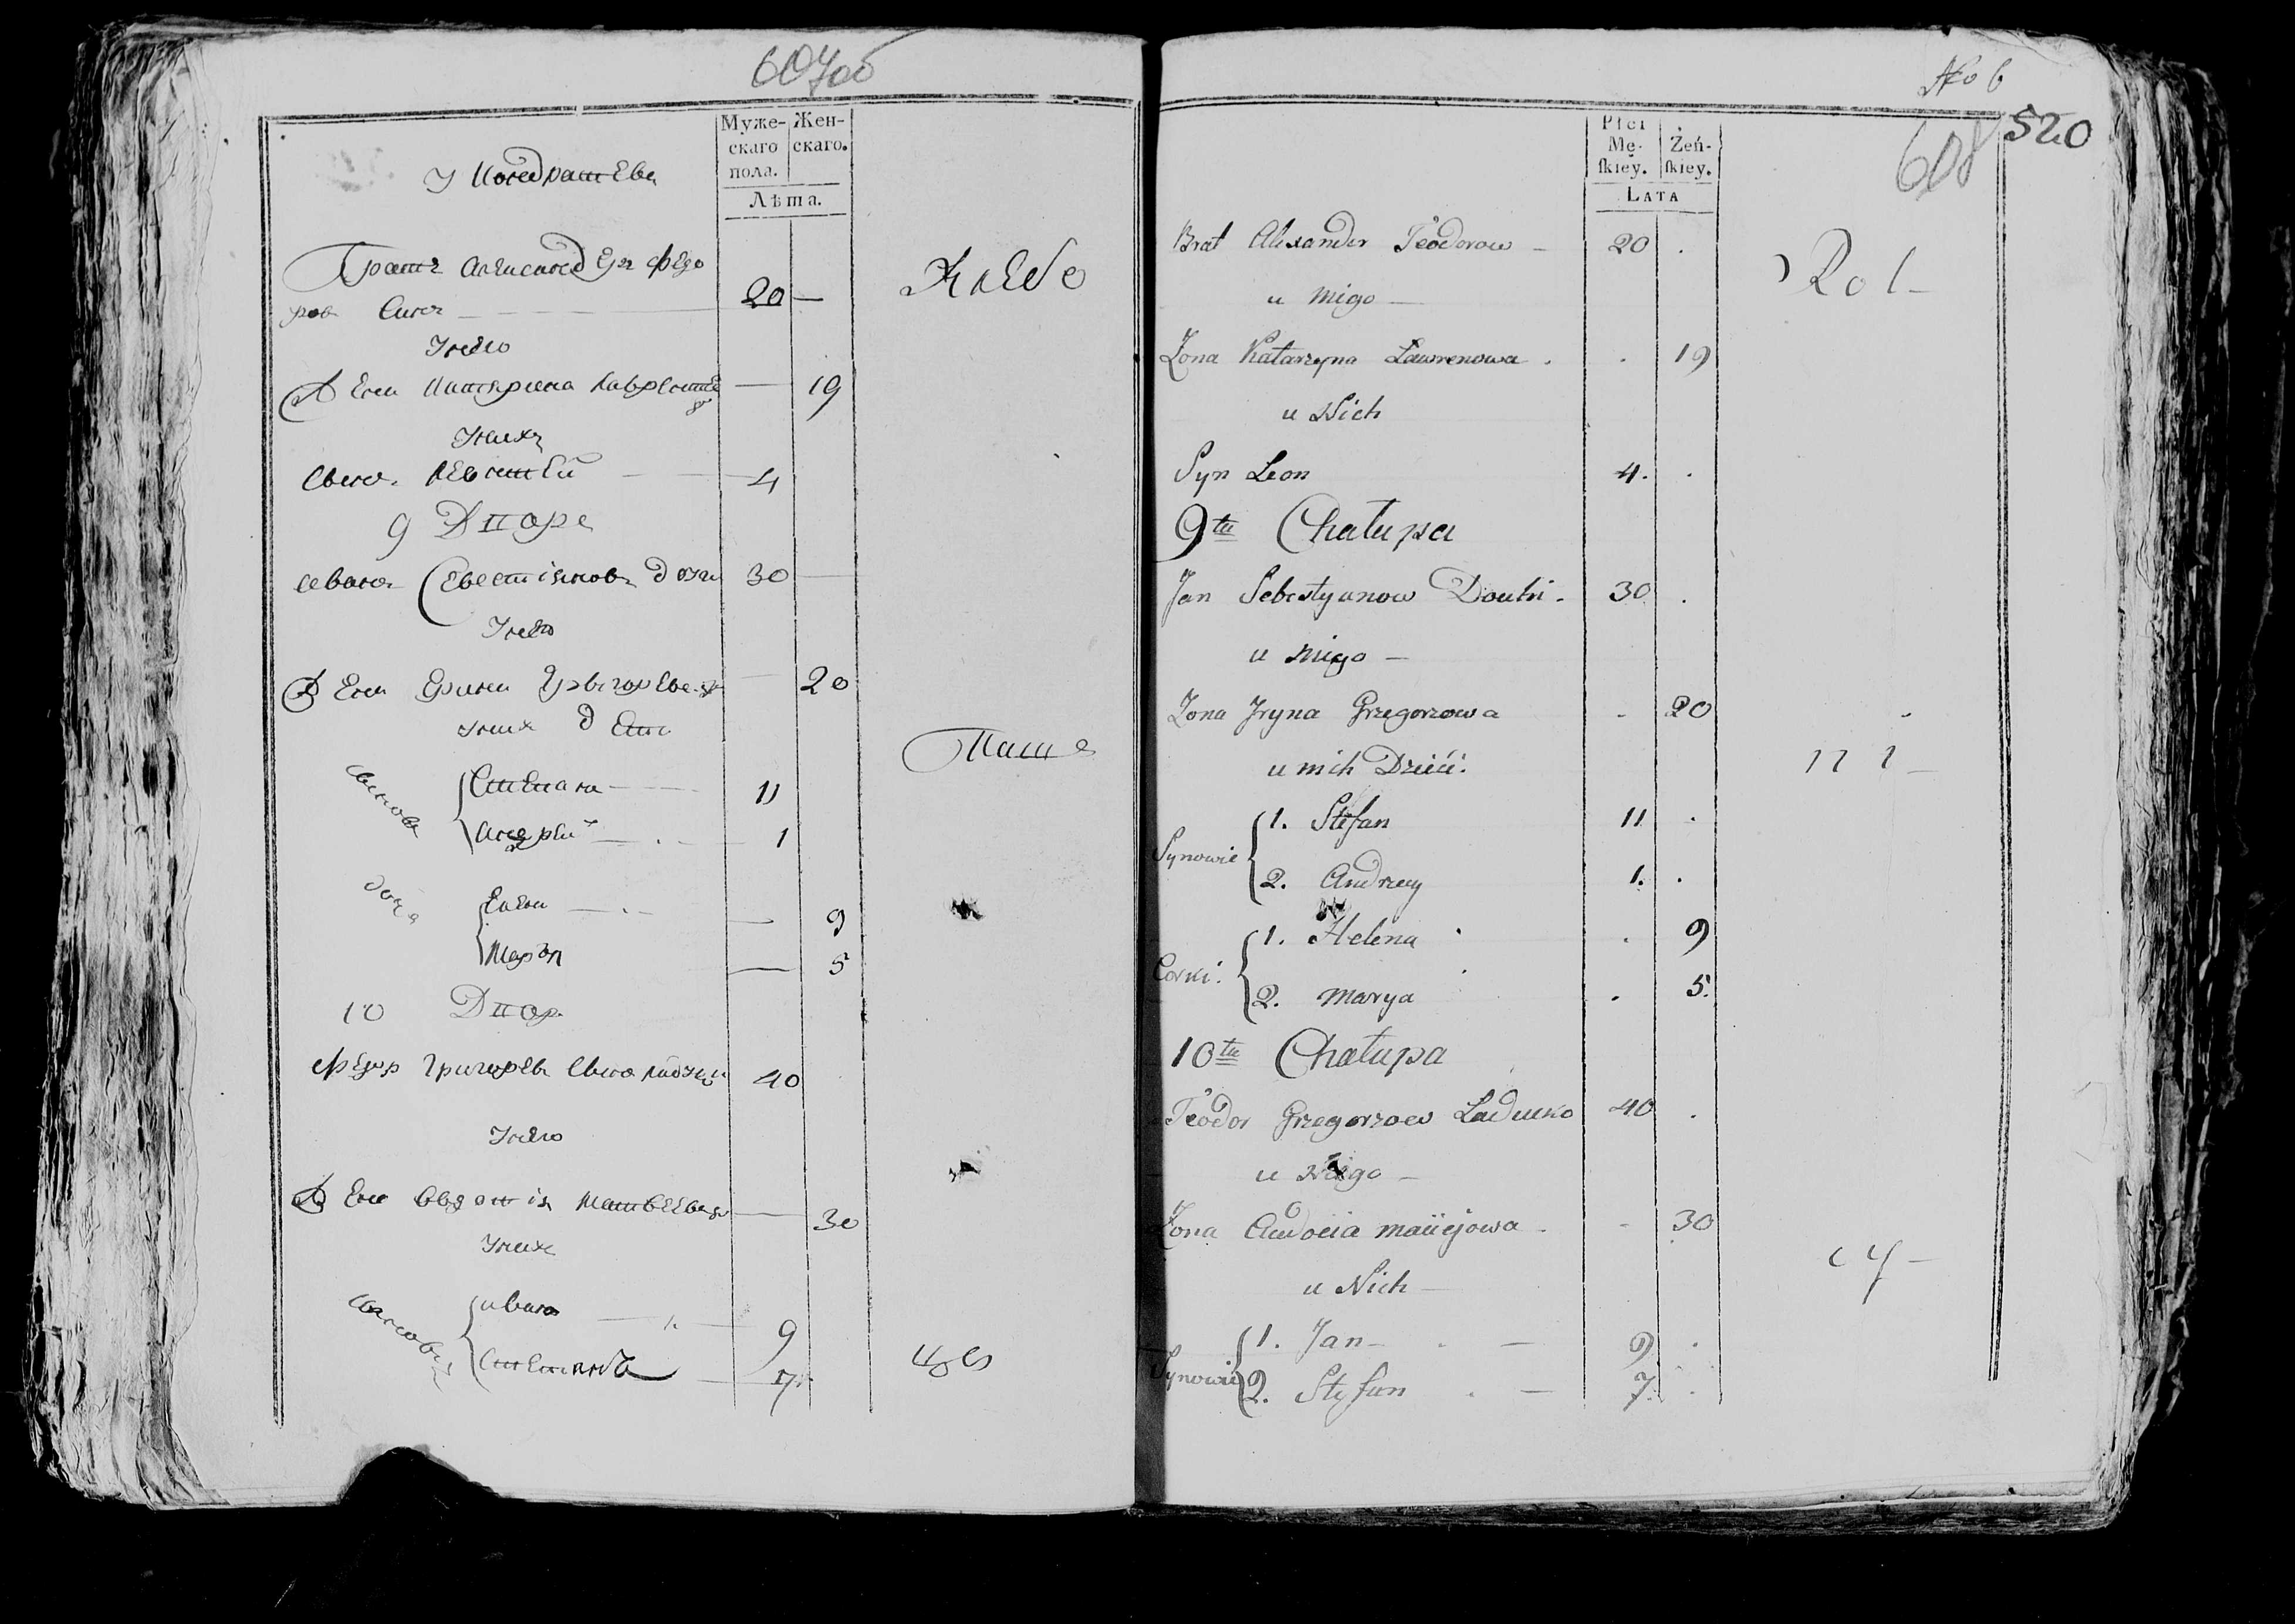 607об
Муже-
скаго
пола.
Жен-
скаго.
Лѣта.
У
Братъ Александръ Федо
ров Синъ 20 —
Хлебо
Унего
Жена Катерина — 19
Унихъ
Сынъ — 4
9 Двора
Иванъ Севастіановъ 30 —
Унего
Жена Ерина — 20
Уних дети
Паше
Синовя
Степанъ 11
Андрей 1
Елена — 9
Марья — 5
10 Двор
Федор Григорев Сынъ 40
Унего
Жена Авдотія Матвеева — 30
Уних
Синовя
Иванъ 9
Степанъ 7
No 6
520
608
Płci
Mę-
ſkiey.
Żeń-
ſkiey.
Lata
Brat Alexander Teodorow — 20 .
Rol —
u niego —
Zona Katarzyna Lawrenowa . . 19
u Nich
Syn Leon 4. .
9ta Chałupa
Jan Sebestyanow 30 .
u niego —
Zona Jryna Grzegorzowa . 20
u nich Dzieci.
Synowie
1. Stefan 11 .
2. Andrzey 1. .
Corki.
1. Helena . 9
2. Marya . 5.
10ta Chałupa
Teodor Grzegorzow Laducko 40 .
u Niego —
Zona Audocia Maciejowa — - 30
u Nich —
Synowie
1. Jan — . — 9 .
2. Stefan . — 7. .